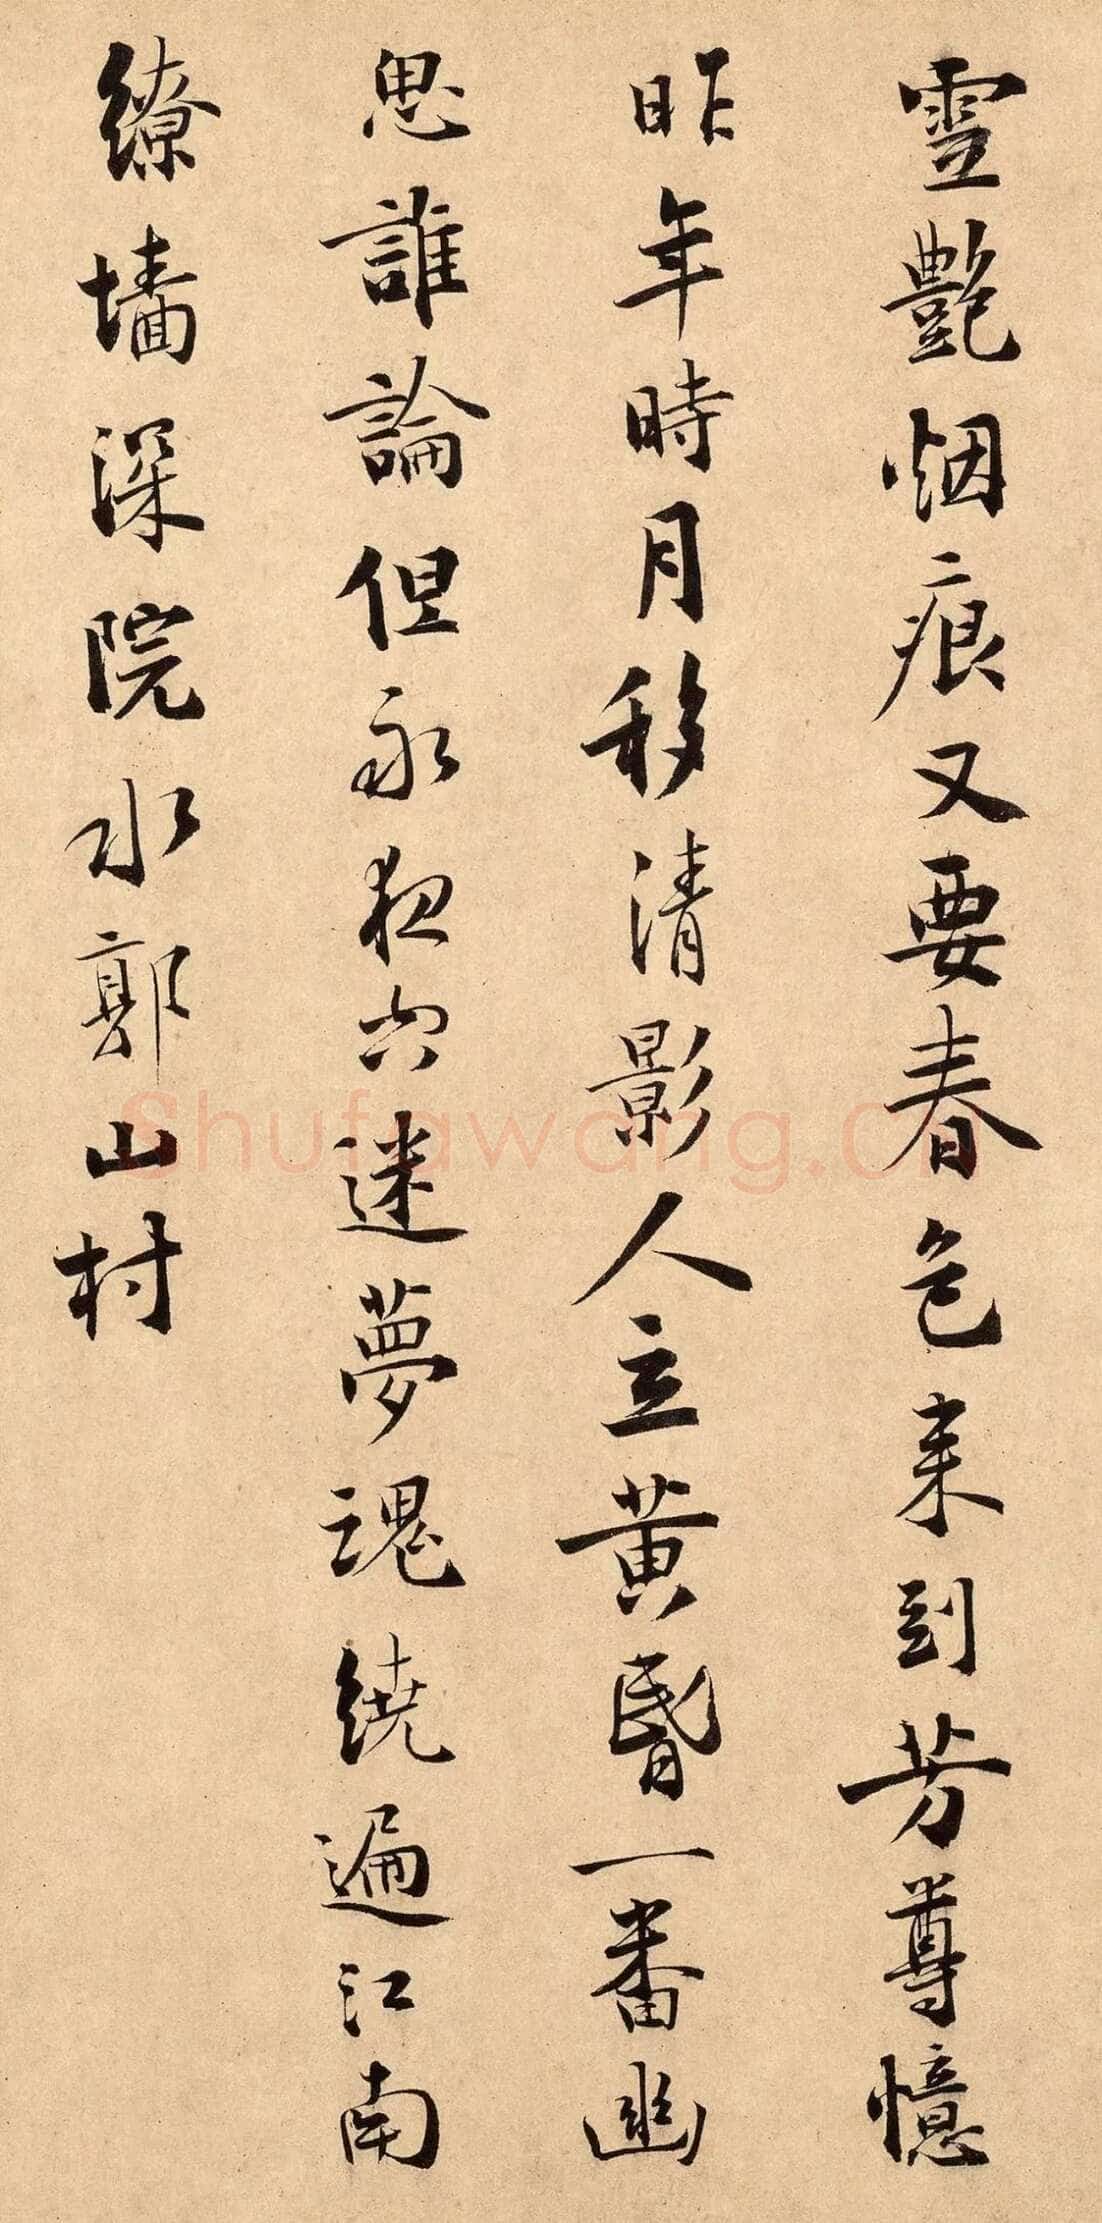 雪艶烟痕又要春色来到芳尊憶
昨年時月移清影人立黄昬一番幽
思誰論但永夜空迷夢魂繞遍江南
繚墻深院水郭山村
Shufawang.cn